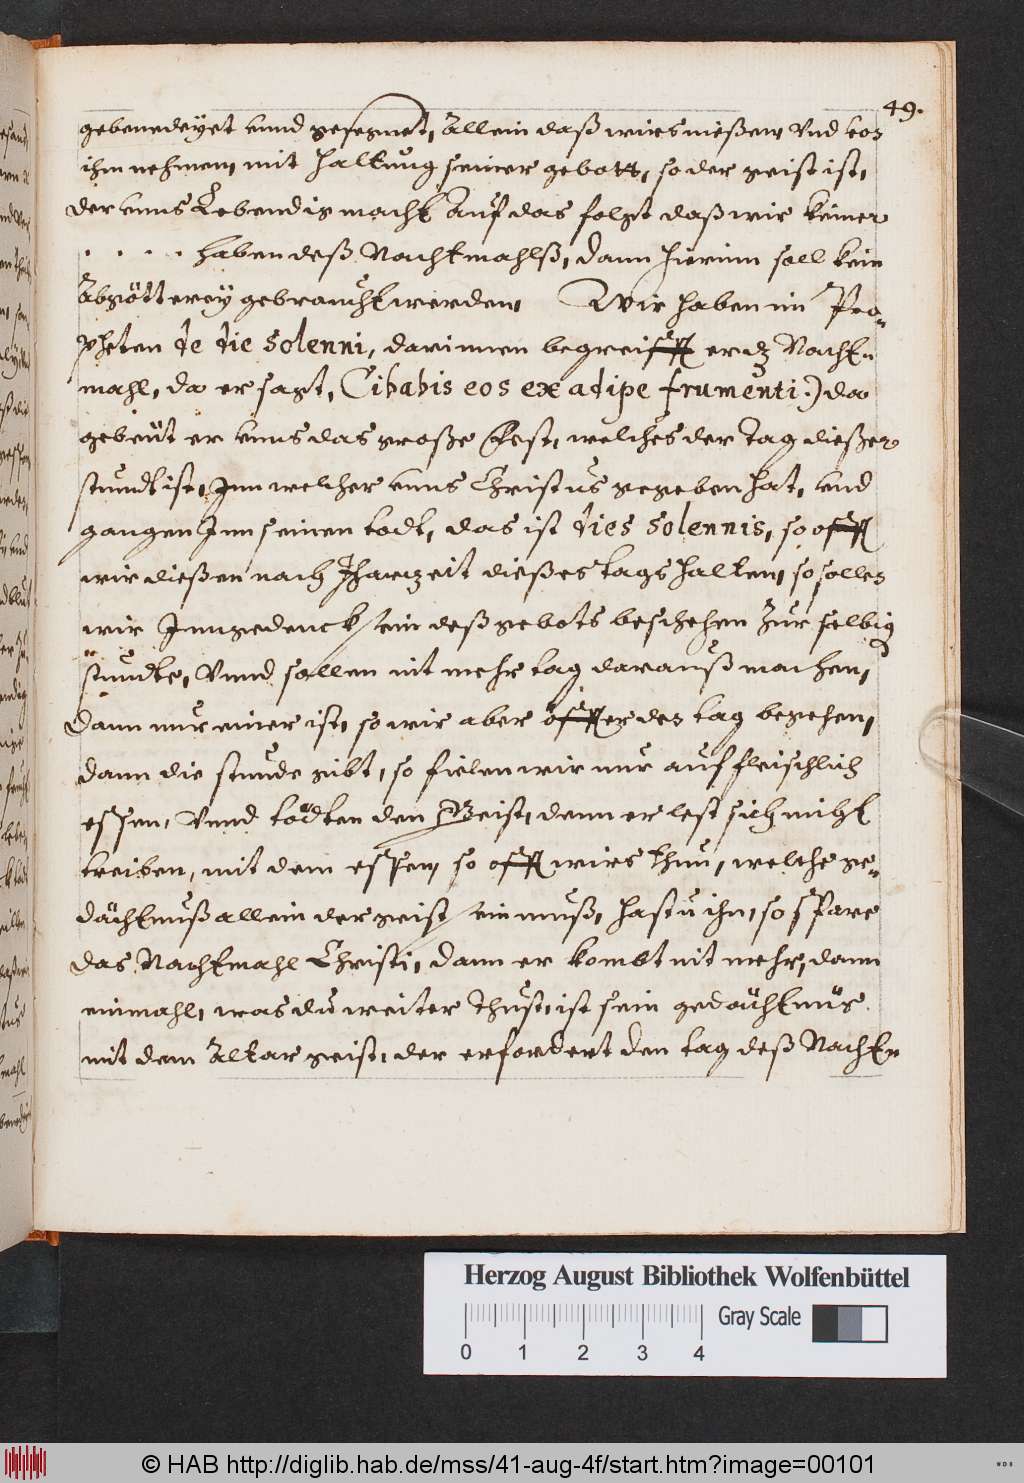 49.
gebenedeyet unnd gesegnet, Allein daß wirs nießen, Und von
ihm nehmen, mit Haltung seiner gebott, so der geist ist,
der unns Lebendig macht Auf das folgt daß wir keiner
. . . . haben deß Nachtmahlß, dann hierinn soll kein
Abgötterey gebraucht werden, Wir haben im Pro-
pheten de die solenni, darinnen begreifft er dz Nacht-
mahl, da er sagt, (Cibabis eos ex adipe frumenti.) da
gebeüt er unns das große Fest, welches der Tag dießer
stundt ist, Inn welcher unns Christus gegeben hat, und
gangen Inn seinen todt, das ist dies solennis, so offt
wir dießen nach Jharzeit dießes tags halten, so sollen
wir Inngedenck sein deß gebots beschehen Zur selbig
stundte, Unnd sollen nit mehr tag darauß machen,
dann nur einer ist, so wir aber öffter den tag begehen,
dann die stunde gibt, so fielen wir nur auff fleischlich
essen, Unnd tödten den Geist, denn er lest sich nicht
treiben, mit dem essen, so offt wirs thun, welche ge-
dächtnuß allein der geist sein muß, hastu ihn, so spare
das Nachtmahl Christi, dann er kombt nit mehr, dann
einmahl, was du weiter thust, ist sein gedächtnüs
mit dem Altar geist, der erfordert den tag deß Nacht-
Herzog August Bibliothek Wolfenbüttel
Gray Scale
0 1 2 3 4
© HAB http://diglib.hab.de/mss/41-aug-4f/start.htm?image=00101